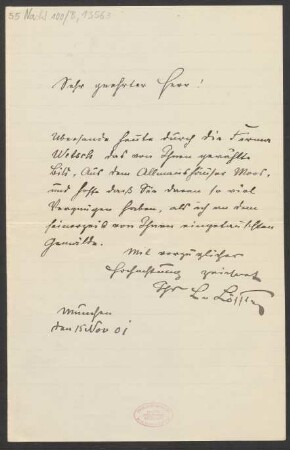 55 Nachl 100/B,
Sehr geehrter Herr!
Übersende heute durch die Firma
Wetsch das von Ihnen gewählte
Bild, Aus dem Allmannshauser Moos,
und hoffe daß Sie daran so viel
Vergnügen haben, als ich an dem
seinerzeit von Ihnen eingetauschten
Gemälde.
Mit vorzüglicher
Hochachtung zeichnet
Ihr
München
den 15 Nov 01